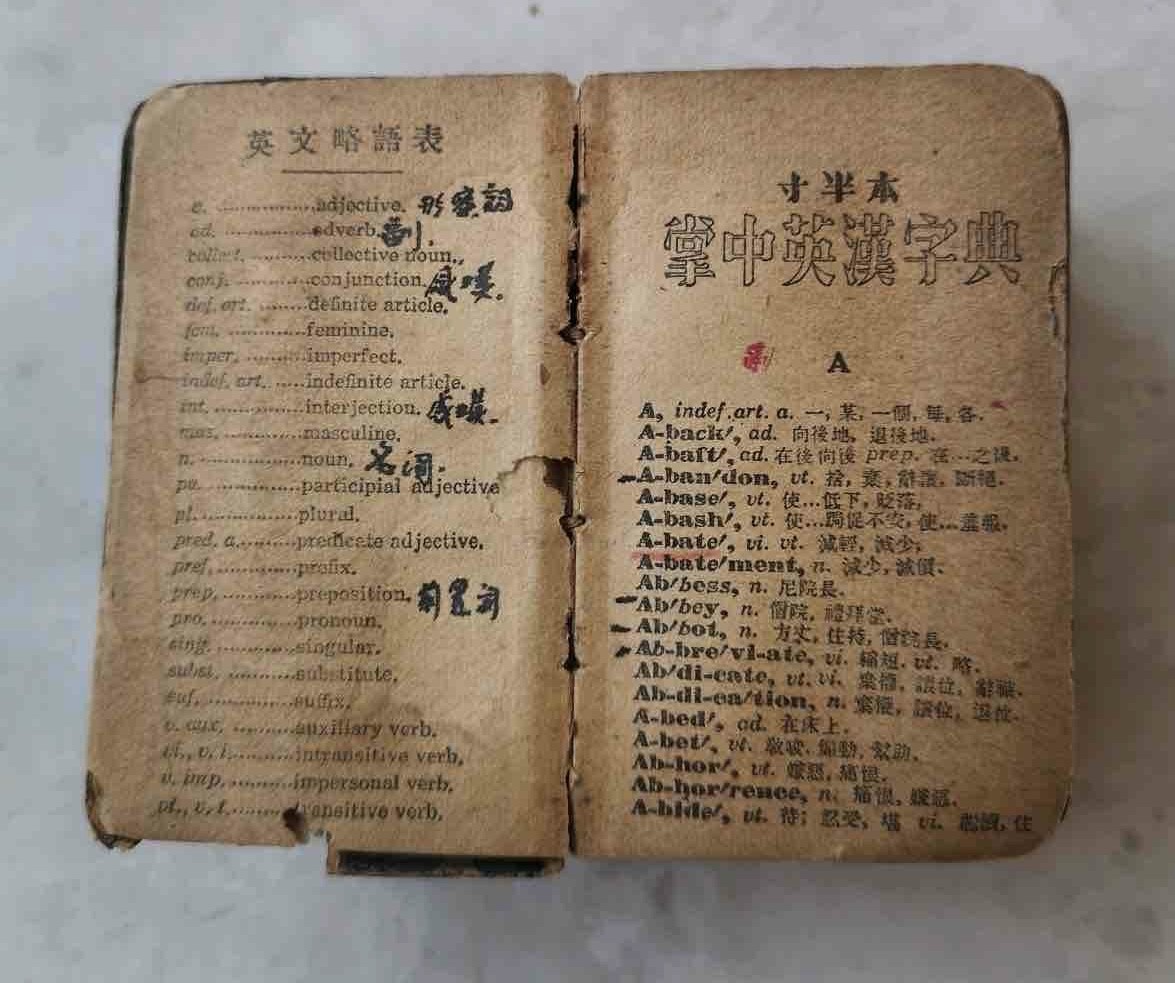 英文略語表
a. ................adjective. 形容詞
ad. ................adverb. 副.
collect. ...........collective noun.
conj. .............conjunction. 感嘆.
def. art. .........definite article.
fem. ...............feminine.
imper. ............imperfect.
indef. art. ......indefinite article.
int. ................interjection. 感嘆.
mas. ..............masculine.
n. ..................noun. 名詞.
pa. ................participial adjective
pl. .................plural.
pred. a. ..........predicate adjective.
pref. ..............prefix.
prep. .............preposition. 前置詞
pro. ...............pronoun.
sing. ..............singular.
subst. .............substitute.
suf. ................suffix.
v. aux. ...........auxiliary verb.
vi., v. i. ..........intransitive verb.
v. imp. ...........impersonal verb.
vt., v. t. ..........transitive verb.
寸半本
掌中英漢字典
副 A
A, indef. art. a. 一, 某, 一個, 每, 各.
A-back′, ad. 向後地, 退後地.
A-baft′, ad. 在後向後 prep. 在…之後.
A-ban′don, vt. 捨, 棄, 辭讓, 斷絕.
A-base′, vt. 使…低下, 貶落.
A-bash′, vt. 使…跼促不安, 使…羞赧.
A-bate′, vi. vt. 減輕, 減少;
A-bate′ment, n. 減少, 減價.
Ab′bess, n. 尼院長.
Ab′bey, n. 僧院, 禮拜堂.
Ab′bot, n. 方丈, 住持, 僧院長.
Ab-bre′vi-ate, vi. 縮短. vt. 略.
Ab′di-cate, vt. vi. 棄權, 讓位, 辭職.
Ab-di-ca′tion, n. 棄權, 讓位, 退位.
A-bed′, ad. 在床上.
A-bet′, vt. 教唆, 煽動, 幫助.
Ab-hor′, vt. 嫌惡, 痛恨.
Ab-hor′rence, n. 痛恨, 嫌惡.
A-bide′, vt. 待; 忍受, 堪 vi. 繼續, 住